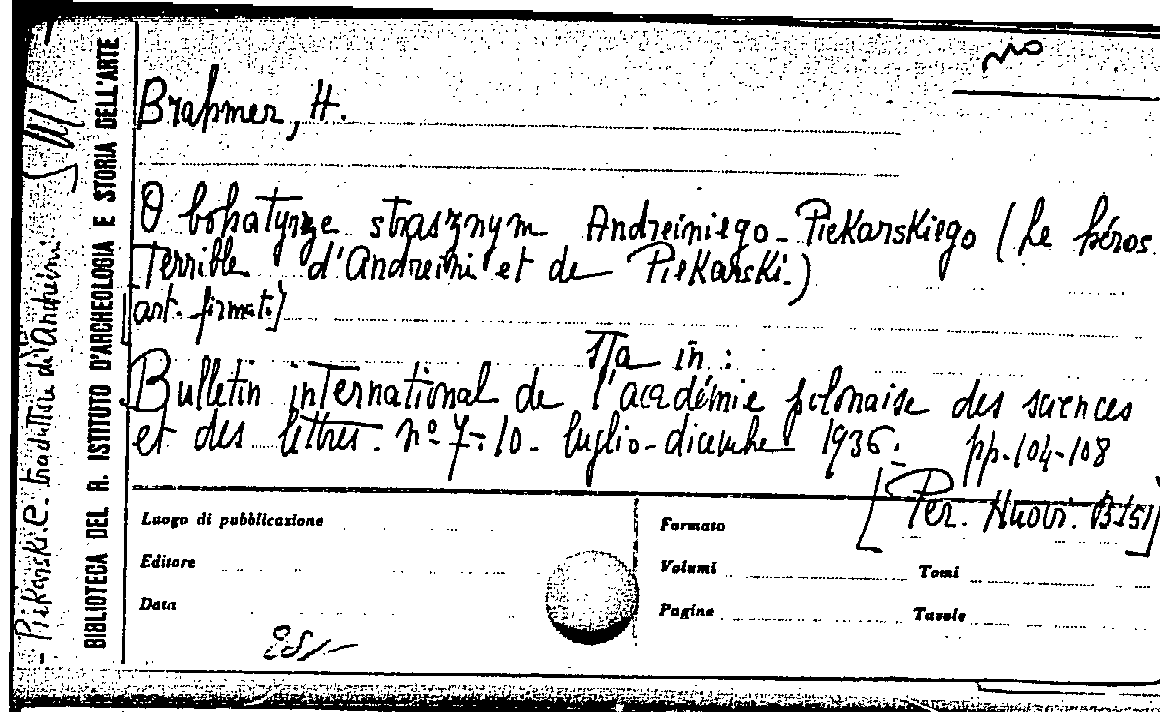 Brahmer, H.
O bohatyrze strasznym Andreiniego-Piekarskiego (Le héros
Terrible d'Andreini et de Piekarski.)
art. firmato]
Sta in:
Bulletin international de l'académie polonaise des sciences
et des lettres. nº 7-10. luglio-dicembre 1936. pp. 104-108
[Per. Nuovi. B151]
Luogo di pubblicazione
Editore
Data
Formato
Volumi
Tomi
Pagine
Tavole
BIBLIOTECA DEL R. ISTITUTO D'ARCHEOLOGIA E STORIA DELL'ARTE
- Piekarski.